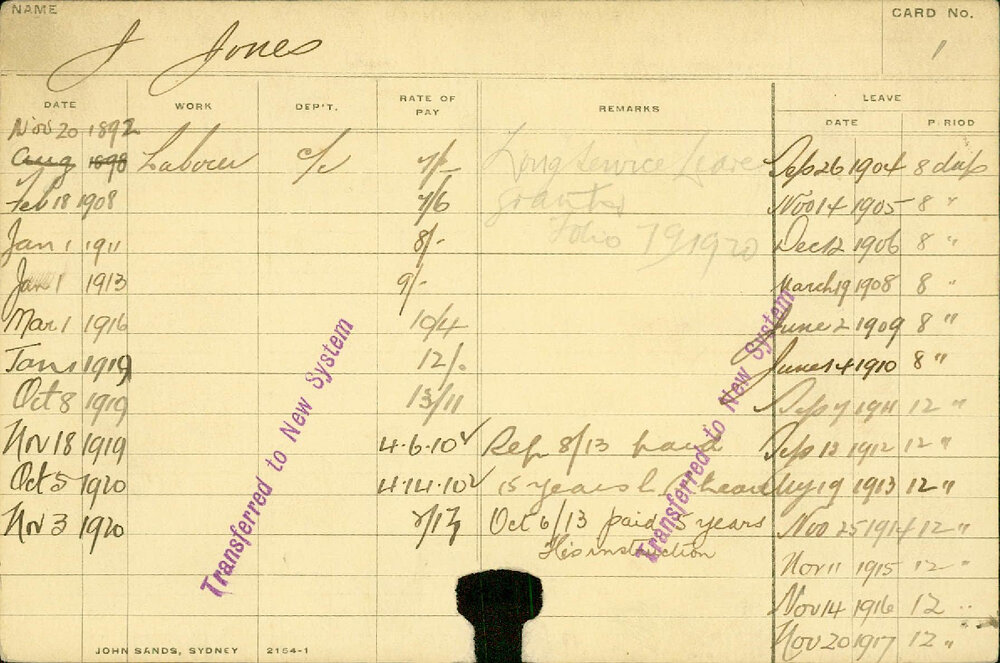 NAME
CARD No.
J Jones
1
DATE WORK DEP'T. RATE OF PAY REMARKS LEAVE
DATE PERIOD
Nov 20 1892
Aug 1898 Labourer c/c 7/- Long Service Leave Sep 26 1904 8 days
Feb 18 1908 7/6 granted Nov 14 1905 8 "
Jan 1 1911 8/- Folio 79 1920 Dec 12 1906 8 "
Jan 1 1913 9/- March 19 1908 8 "
Mar 1 1916 10/4 June 2 1909 8 "
Jan 1 1919 12/. June 14 1910 8 "
Oct 8 1919 13/11 Sep 7 1911 12 "
Nov 18 1919 4-6-10 Rep 8/13 paid Sep 12 1912 12 "
Oct 5 1920 4-14-10 15 years 19 1913 12 "
Nov 3 1920 Oct 6/13 paid 5 years Nov 25 1914 12 "
His instruction
Nov 11 1915 12 "
Nov 14 1916 12 "
Nov 20 1917 12 "
Transferred to New System
Transferred to New System
JOHN SANDS, SYDNEY 2154-1